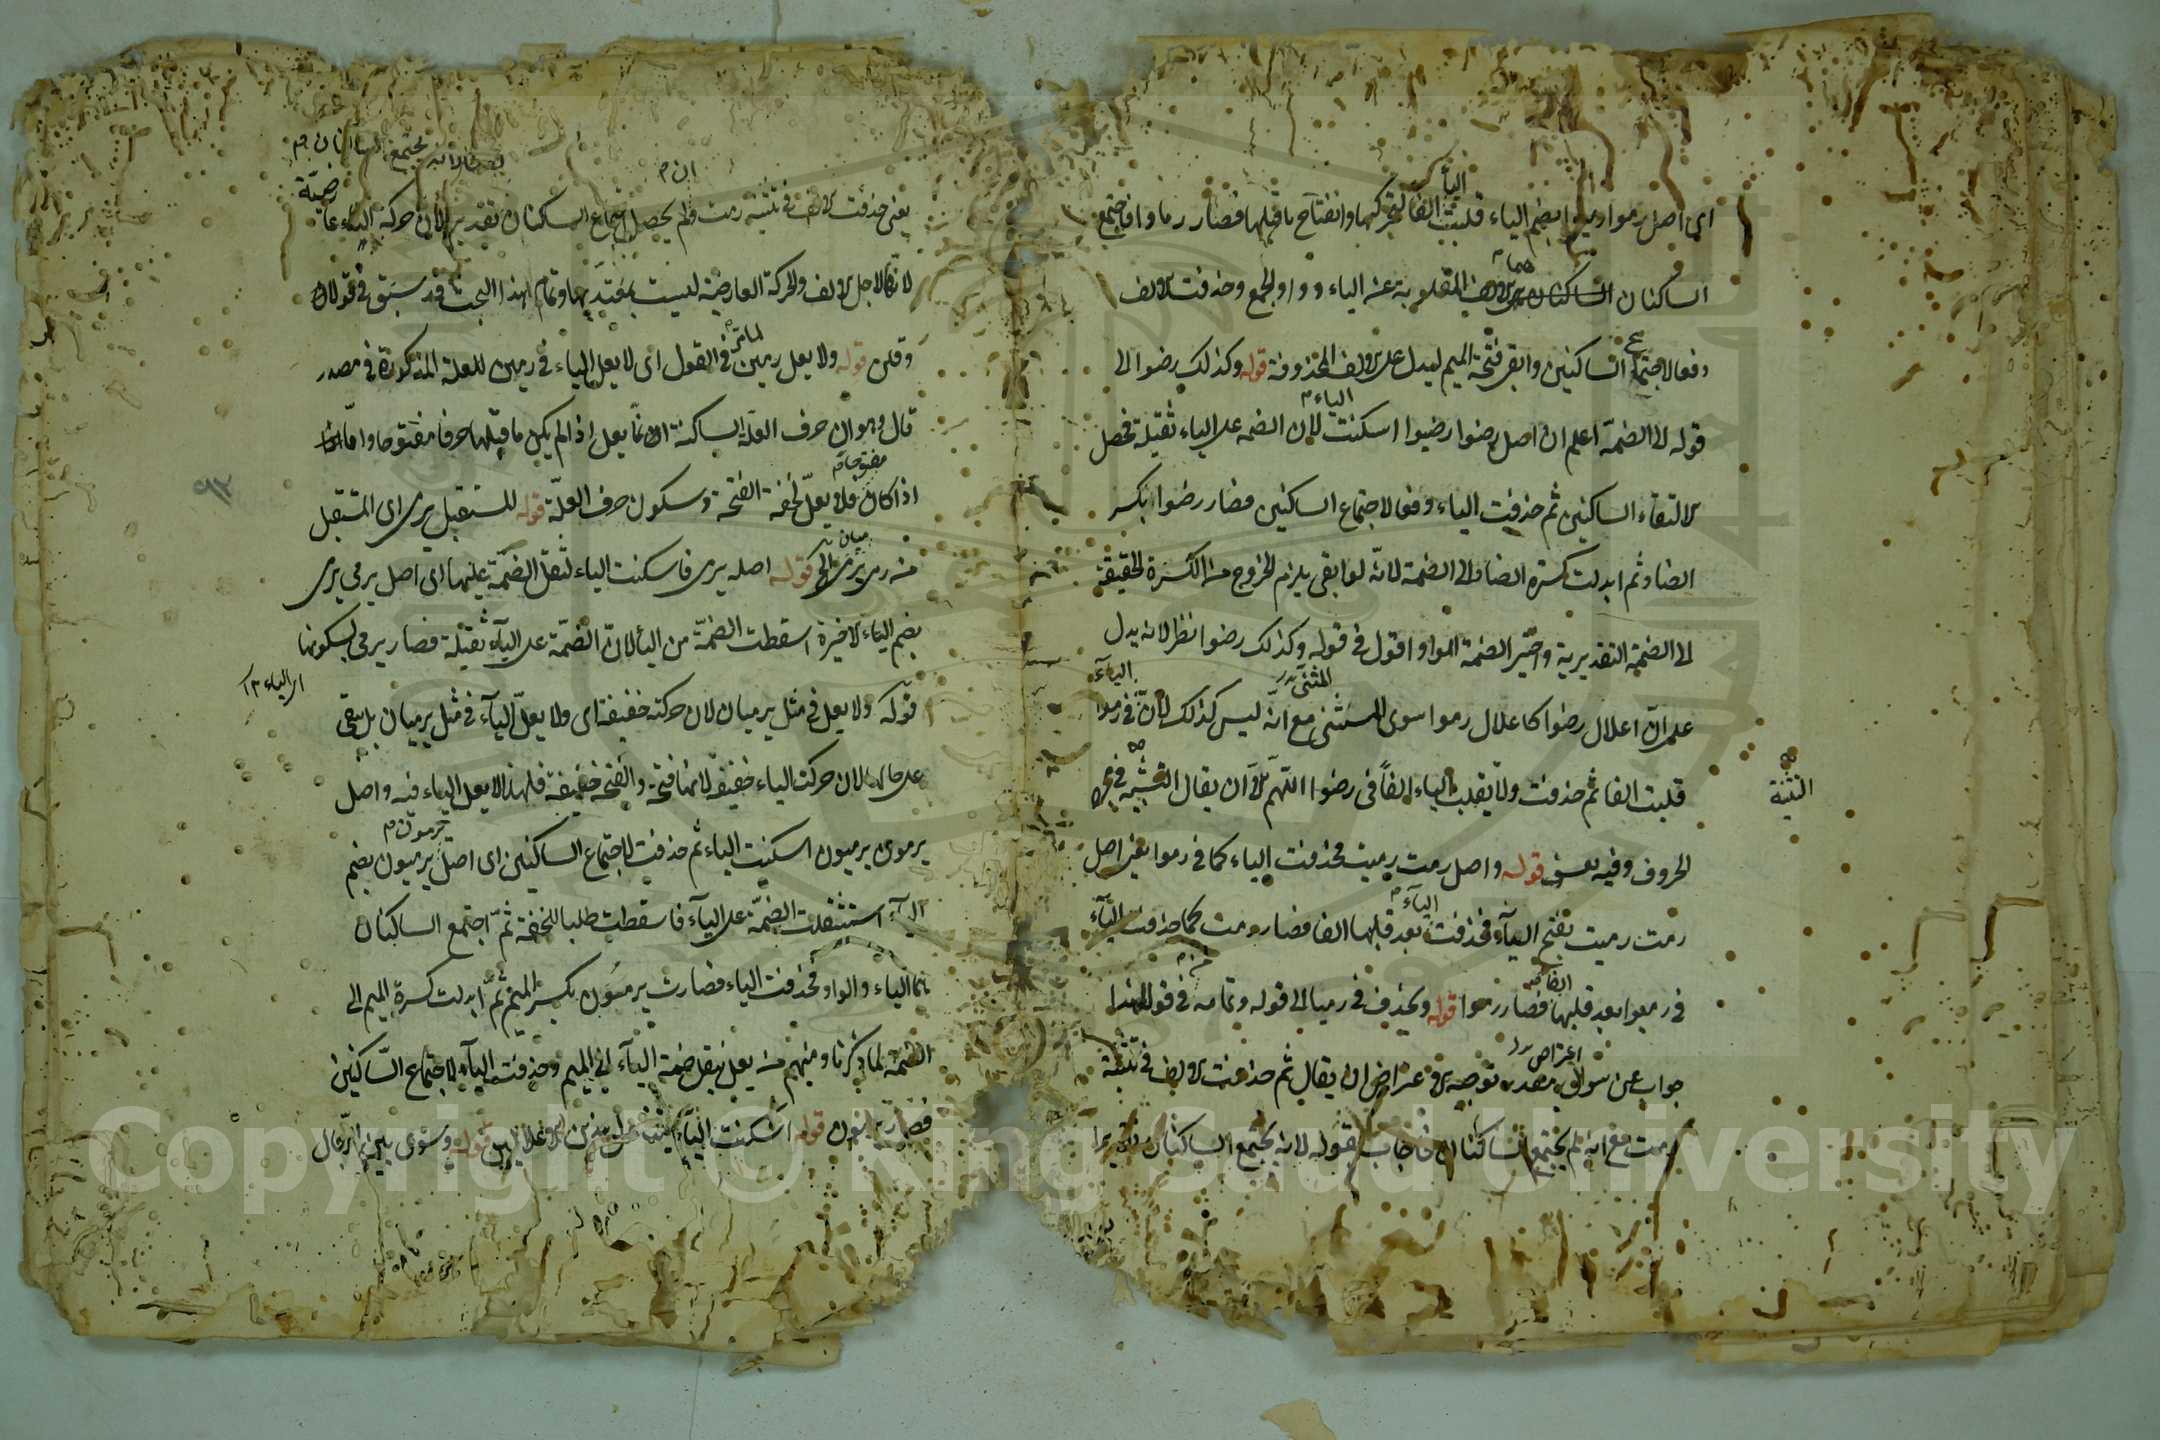 الياء
اى اصل رموا رميوا بضم الياء قلبت الفا لتحركها وانفتاح ما قبلها فصار رماوا فاجتمع
هما
الساكنان الالف المقلوبة عن الياء وواو الجمع وحذفت الالف
دفعا لاجتماع الساكنين وابقى فتحة الميم ليدل على الالف المحذوفة قوله وكذلك رضوا الى
الياء
قوله الى الضمة اعلم ان اصل رضوا رضيوا اسكنت لان الضمة على الياء ثقيلة فحصل
الالتقاء الساكنين ثم حذفت الياء دفعا لاجتماع الساكنين فصار رضوا بكسر
الضاد ثم ابدلت كسرة الضاد الى الضمة لانه لو ابقى يلزم الخروج من الكسرة الحقيقة
الى الضمة التقديرية واختير الضمة للواو اقول فى قوله وكذلك رضوا نظر لانه يدل
المثنى الياء
على ان اعلال رضوا كاعلال رموا سوى المستثنى مع انه ليس كذلك لان فى رموا
قلبت الفا ثم حذفت ولا يقلب الياء الفا فى رضوا اللهم الا ان يقال التشبيه فى
التثنية
الحروف وفيه قوله واصل رمت رميت فحذفت الياء كما فى رموا يعنى اصل
الياء
رمت رميت بفتح الياء فحذفت بعد قلبها الفا فصار رمت كما حذفت الياء
الفا
فى رميوا بعد قلبها فصار رموا قوله ويحذف فى رمتا الى قوله وتمامه فى قولا هذا
اعتراض
جواب عن سؤال مقدر توجيه الاعتراض ان يقال ثم حذفت الالف فى تثنية
رمت مع انه لم يجتمع الساكنان فاجاب بقوله لانه يجتمع الساكنان تقديرا
يجتمع الساكنان
ان
يعنى حذفت الالف فى تثنية رمت ولم يحصل اجتماع الساكنان تقديرا لان حركة التاء عارضية
لانها لاجل الالف والحركة العارضية ليست بمعتد بها وتمام هذا البحث قد سبق فى قولا
لما مر
وقلن قوله ولا يعل رمين فى القول اى لا يعل الياء فى رمين للعلة المذكورة فى مصدر
قال وهو ان حرف العلة الساكنة انما يعل اذا لم يكن ما قبلها حرفا مفتوحا واما
مفتوحا
اذا كان فلا يعل لخفة الفتحة وسكون حرف العلة قوله المستقبل يرمى اى المستقبل
من رمى يرمى قوله اصله يرمى فاسكنت الياء لثقل الضمة عليها اى اصل يرمى يرمى
بضم الياء الاخيرة اسقطت الضمة من الياء لان الضمة على الياء ثقيلة فصار يرمى بسكونها
اى الياء
قوله ولا يعل فى مثل يرميان لان حركته خفيفة اى ولا يعل الياء فى مثل يرميان بل يبقى
على حالها لان حركت الياء خفيفة لانها فتحة والفتحة خفيفة فلهذا لا يعل الياء فيه واصل
يرمون
يرمون يرميون اسكنت الياء ثم حذفت لاجتماع الساكنين اى اصل يرميون بضم
الياء استثقلت الضمة على الياء فاسقطت طلبا للخفة ثم اجتمع الساكنان
هما الياء والواو فحذفت الياء فصارت يرمون بكسر الميم ثم ابدلت كسرة الميم الى
الضمة لما ذكرنا ومنهم من يعل بنقل ضمة الياء الى الميم وحذفت الياء لاجتماع الساكنين
فصار يرمون قوله اسكنت الياء قوله وسوى بين الرجال
Copyright © King Saud University